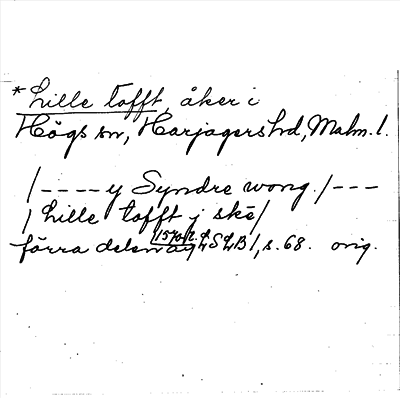 * Lille tofft, åker i
Högs sn, Harjagers hd, Malm. l.
/ - - - - y Syndre wong. / - - -
/ Lille tofft j skē /
förra delen av 1570 t. LSLB 1, s. 68. orig.